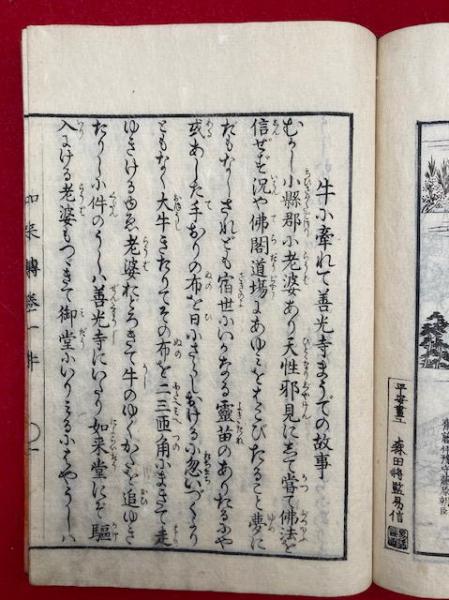 牛に牽れて善光寺まうでの故事
むかし小縣郡に老婆あり天性邪見にして嘗て佛法を
信ぜず況や佛閣道場にあゆみをはこびたること夢に
だもなしされども宿世にいかなる靈苗のありたるにや
或あした手おりの布を日にさらしおけるに忽いづくより
ともなく大牛きたりてその布を二三匝角にまきて走
ゆきけるゆゑ老婆おどろきて牛のゆくかたを追ゆき
たりしに件のうしハ善光寺にいたり如来堂にぞ驅
入にける老婆もつづきて御堂にいりみるにもやうしハ
如来傳巻一
平安畫工 森田將監易信